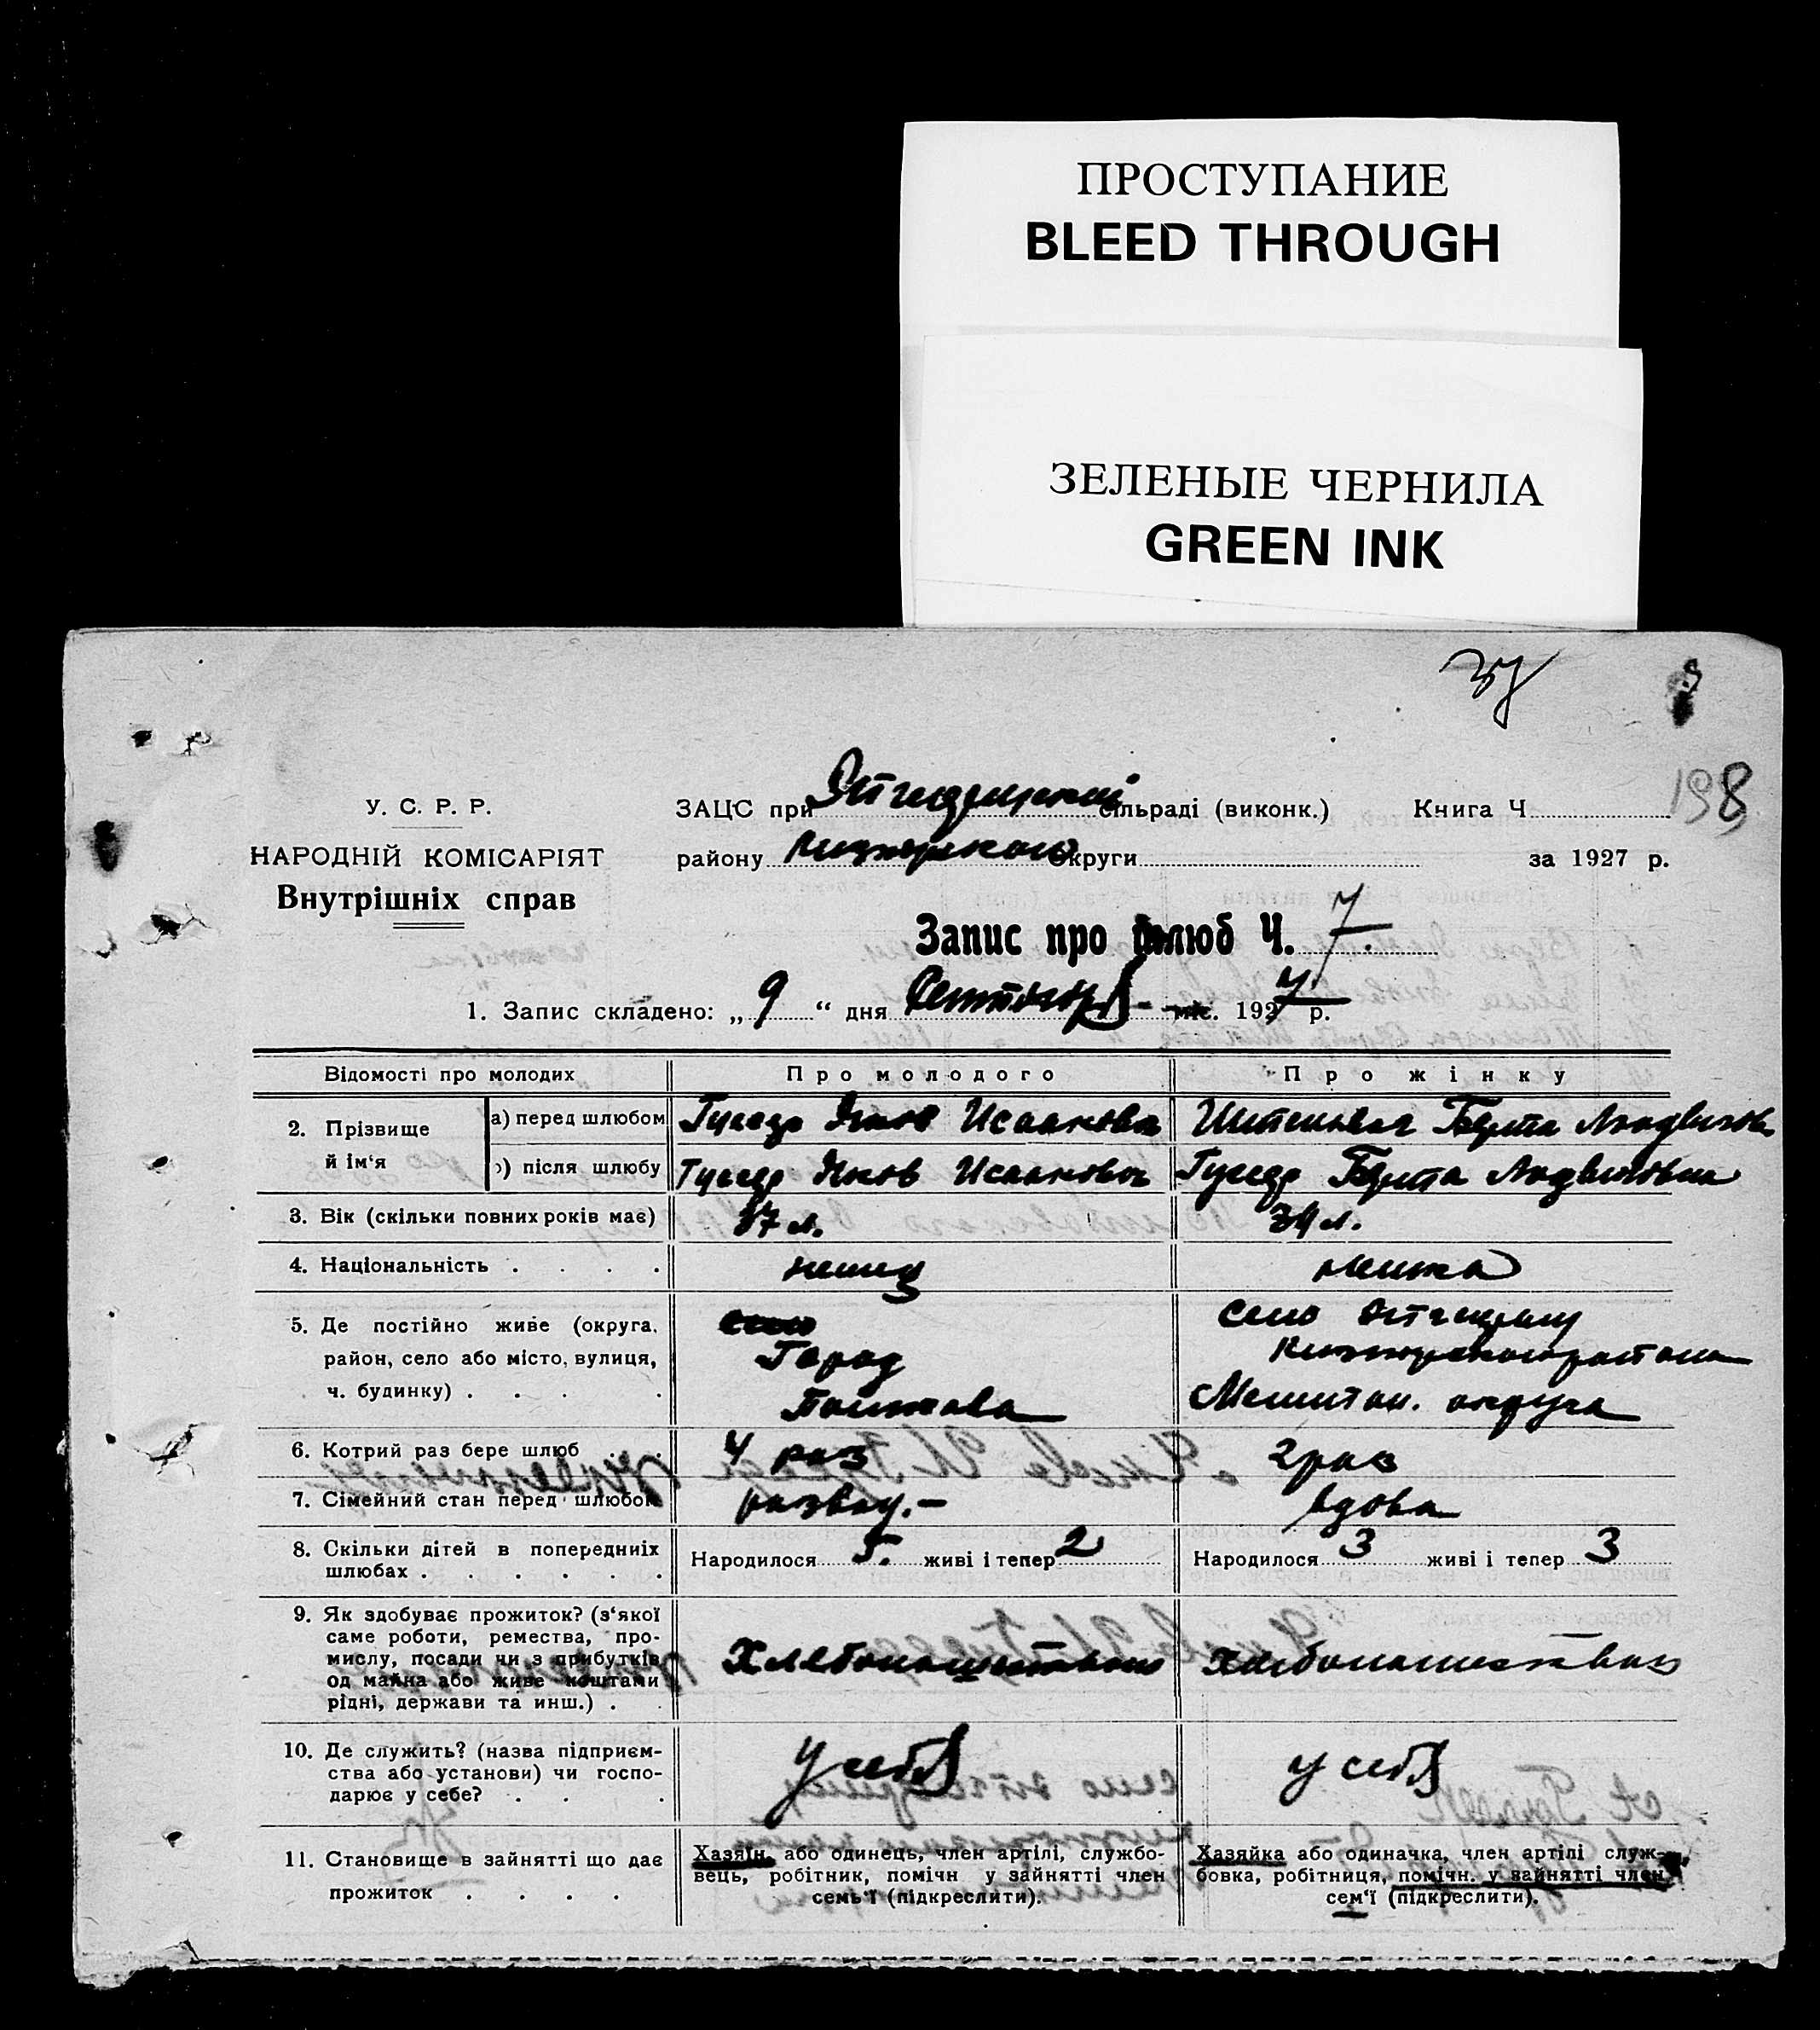 ПРОСТУПАНИЕ
BLEED THROUGH
ЗЕЛЕНЫЕ ЧЕРНИЛА
GREEN INK
198
У. С. Р. Р.
НАРОДНІЙ КОМІСАРІЯТ
Внутрішніх справ
ЗАЦС при сільраді (виконк.) Книга Ч.
району округи за 1927 р.
Запис про шлюб Ч. 7.
1. Запис складено: „ 9 “ дня Сентября - міс. 1927 р.
Відомості про молодих Про молодого Про жінку
2. Прізвище й ім‘я
а) перед шлюбом Яков Исаакович Берта Людвиговн
б) після шлюбу Яков Исаакович Берта Людвиговна
3. Вік (скільки повних років має) 37 л. 34 л.
4. Національність . . . . немец немка
5. Де постійно живе (округа, район, село або місто, вулиця, ч. будинку) . . .
Город
село
Мелитоп. округа
6. Котрий раз бере шлюб . . 4 раз 2 раз
7. Сімейний стан перед шлюбом развед. - вдова
8. Скільки дітей в попередніх шлюбах . . . . . .
Народилося 5. живі і тепер 2 Народилося 3 живі і тепер 3
9. Як здобуває прожиток? (з‘якої
саме роботи, ремества, про-
мислу, посади чи з прибутків
од майна або живе коштами
рідні, держави та инш.) .
Хлебопашество Хлебопашество
10. Де служить? (назва підприєм-
ства або установи) чи госпо-
дарює у себе? . . .
у себя у себя
11. Становище в зайнятті що дає
прожиток . . . .
Хазяїн, або одинець, член артілі, службо-
вець, робітник, помічн у зайнятті член
семь‘ї (підкреслити).
Хазяйка або одиначка, член артілі служ-
бовка, робітниця, помічн. у зайнятті член
сем‘ї (підкреслити).